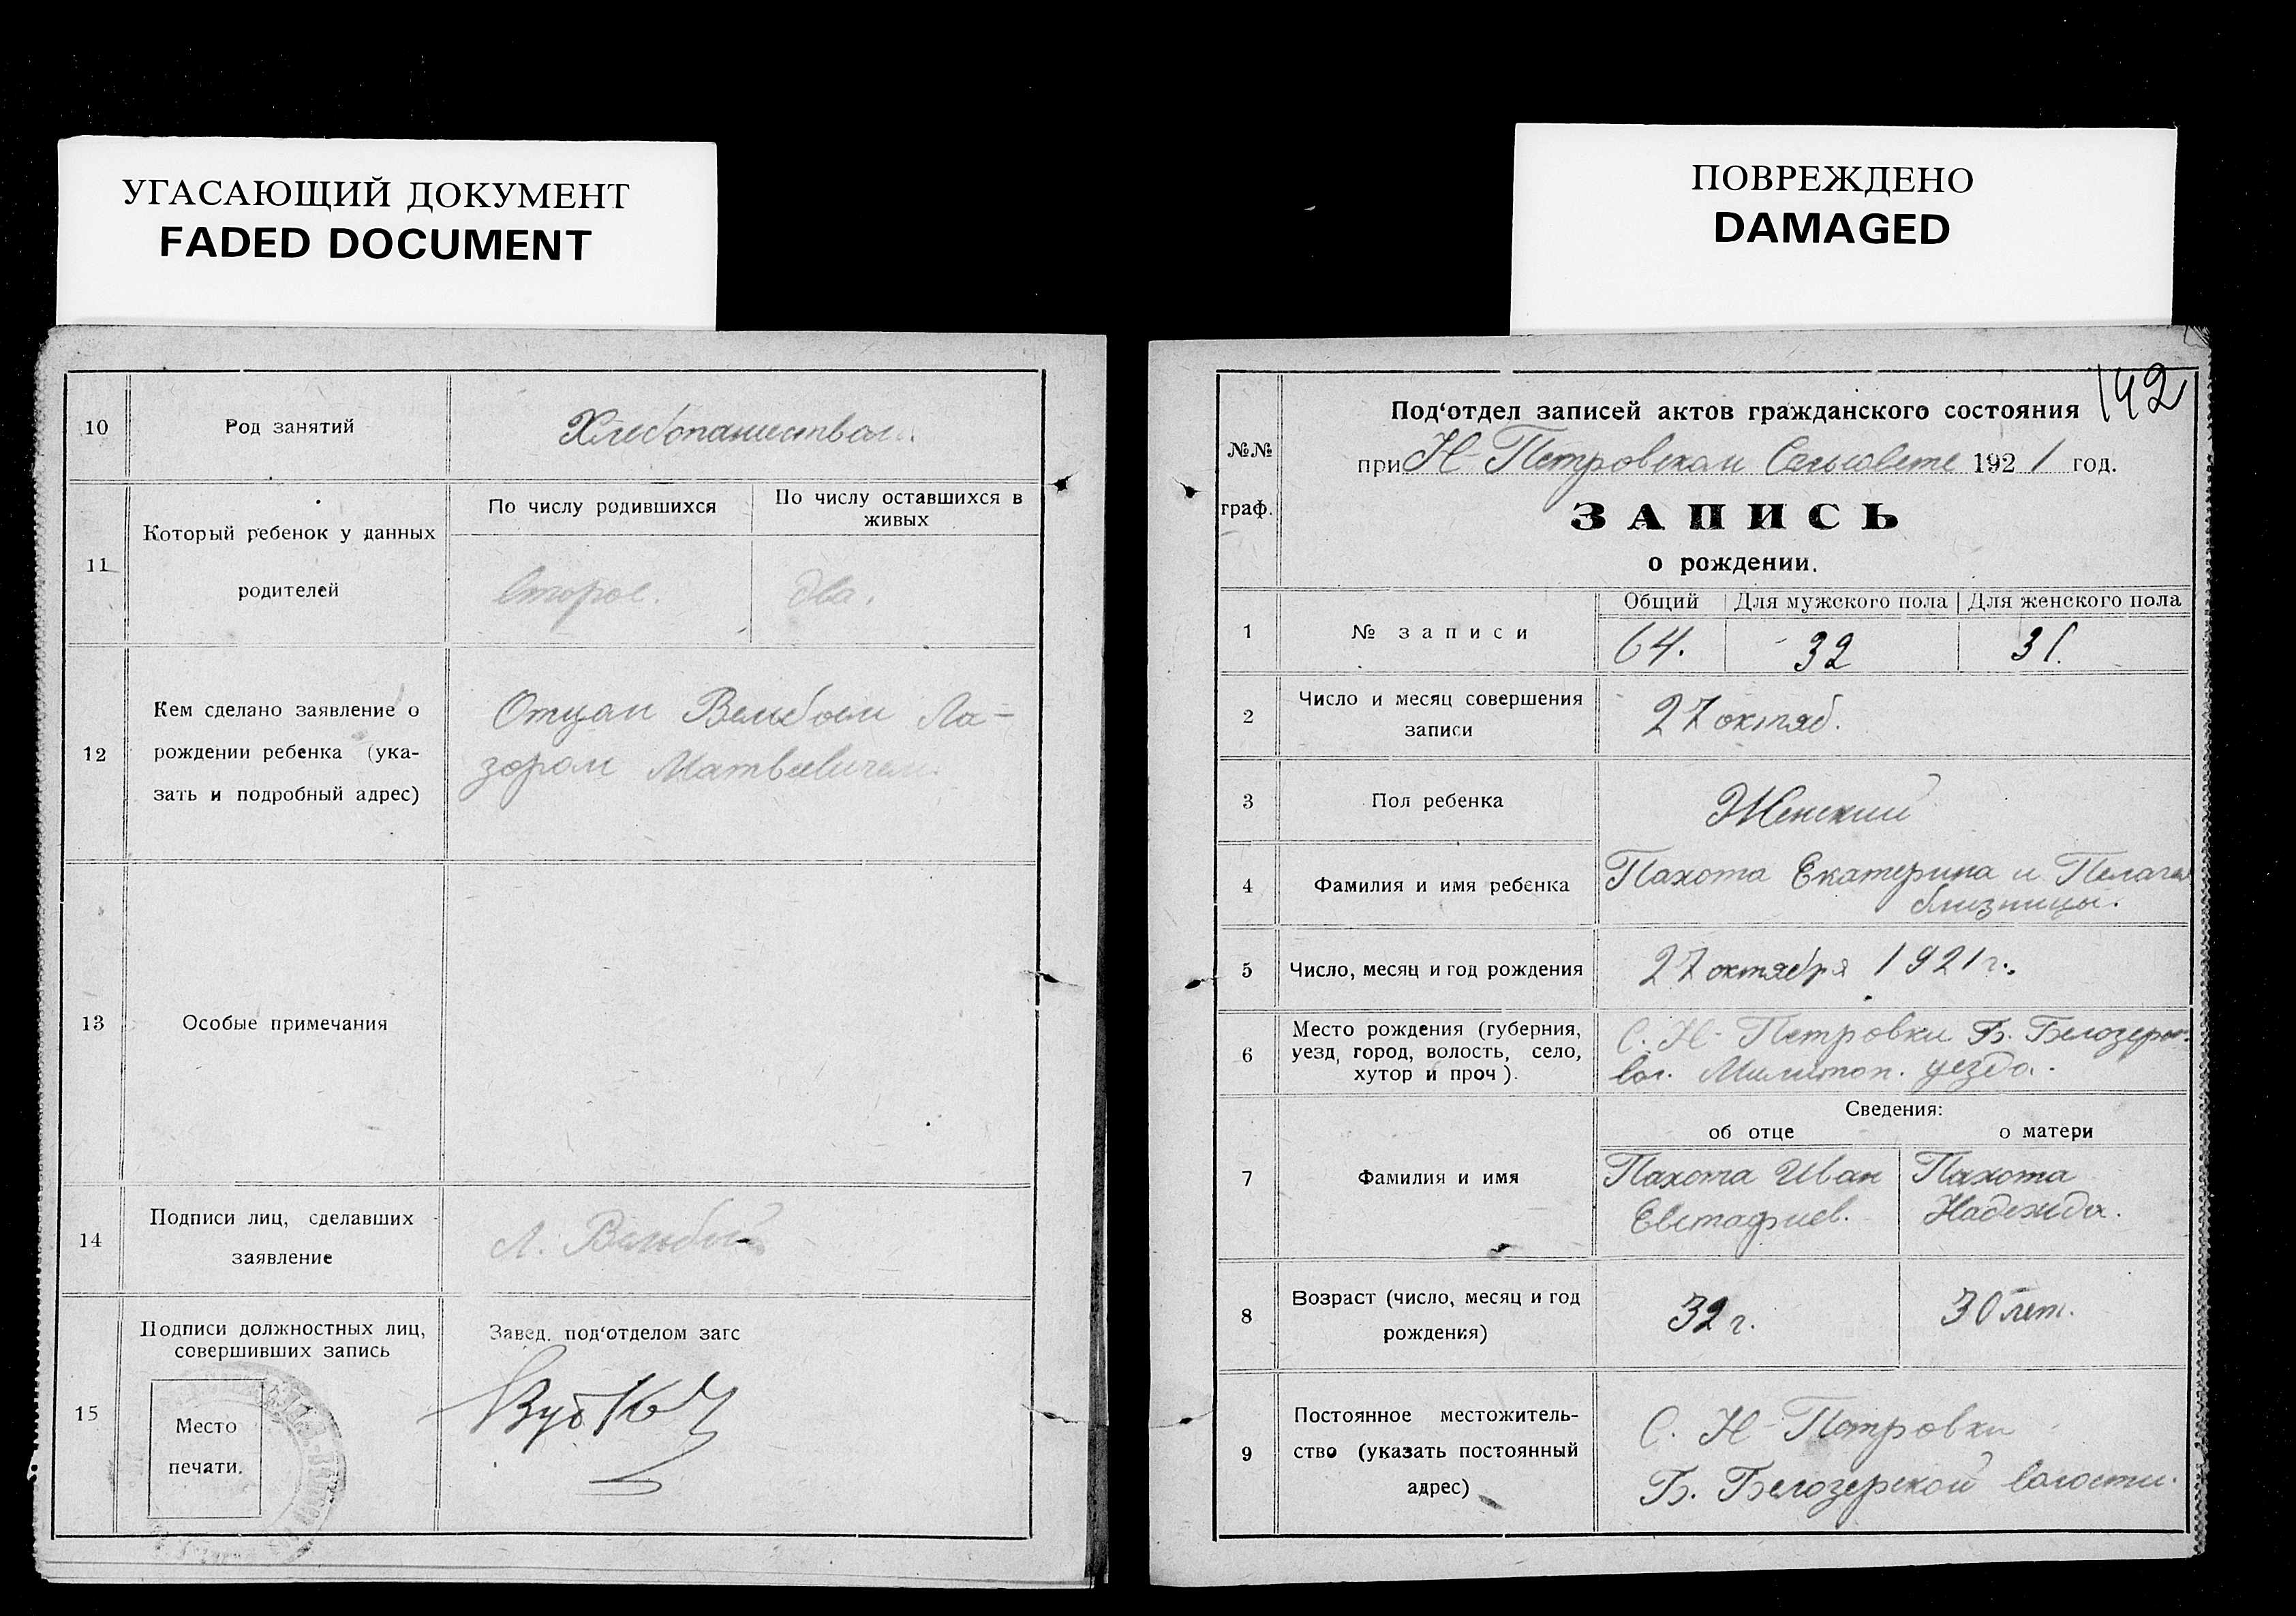 УГАСАЮЩИЙ ДОКУМЕНТ
FADED DOCUMENT
10
Род занятий
Хлебопашеством
11
Который ребенок у данных
родителей
По числу родившихся
По числу оставшихся в
живых
второе.
два.
12
Кем сделано заявление о
рождении ребенка (ука-
зать и подробный адрес)
Отцом Вельбоем Ла-
зором Матвеевичем.
13
Особые примечания
14
Подписи лиц, сделавших
заявление
Л. Вельбой
15
Подписи должностных лиц,
совершивших запись
Завед. под‘отделом загс
Место
печати.
ПОВРЕЖДЕНО
DAMAGED
142
№№
граф.
Под‘отдел записей актов гражданского состояния
при Н-Петровском Сельсовете 1921 год.
ЗАПИСЬ
о рождении.
1
№ записи
Общий Для мужского пола Для женского пола
64. 32 31.
2
Число и месяц совершения
записи
27 октяб.
3
Пол ребенка
Женский
4
Фамилия и имя ребенка
Пахота Екатерина и Пелагея
близницы.
5
Число, месяц и год рождения
27 октября 1921 г.
6
Место рождения (губерния,
уезд, город, волость, село,
хутор и проч).
С. Н-Петровки Б. Белозерс.
вол. Милитоп. уезда.
Сведения:
об отце
о матери
7
Фамилия и имя
Пахота Иван
Евстафиев.
Пахота
Надежда.
8
Возраст (число, месяц и год
рождения)
32 г.
30 лет.
9
Постоянное местожитель-
ство (указать постоянный
адрес)
С. Н-Петровки
Б. Белозерской волости.